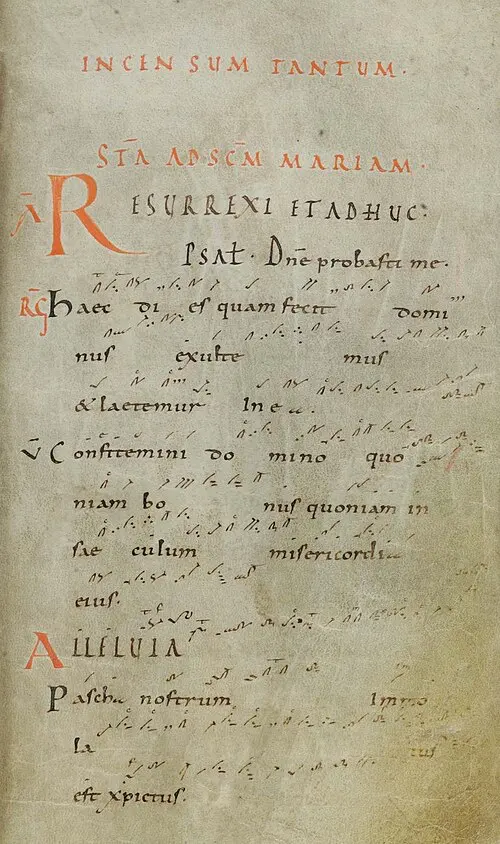 INCENSUM TANTUM·
STĀ AD SCM̄ MARIAM·
Ā RESURREXI ET ADHUC·
PSAŁ· Dn̄e probasti me·
RG̅ Haec di es quam fecit domi
nus exulte mus
& laetemur In ea.
V̄ Confitemini do mino quo
niam bo nus quoniam in
sae culum misericordia
eius.
ALLELUIA
Pascha nostrum Immo
la tus
est xpictus.